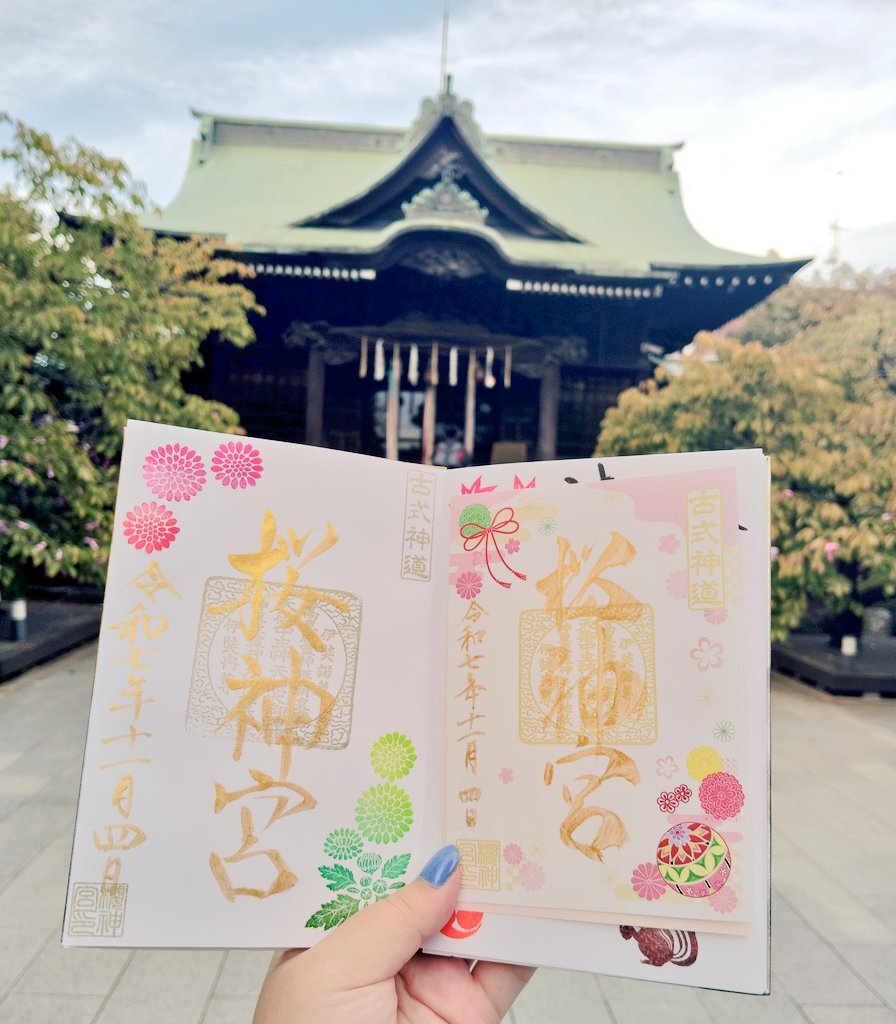 古式神道
桜神宮
令和七年十一月四日
櫻神宮印
古式神道
桜神宮
令和七年十一月四日
櫻神宮印